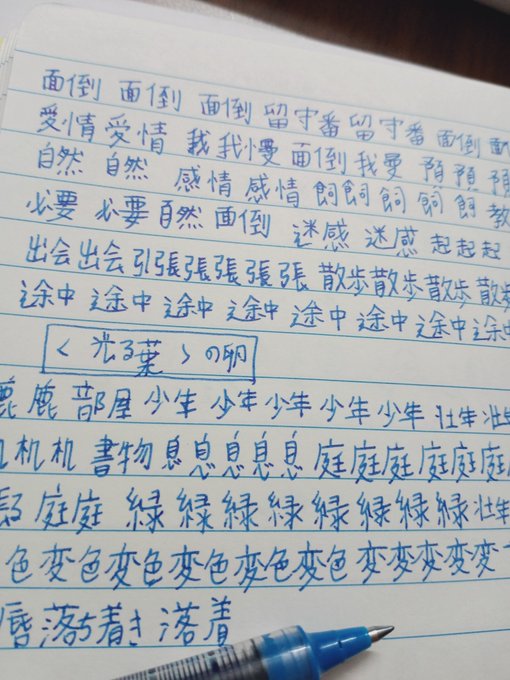 面倒 面倒 面倒 留守番 留守番 面倒
愛情 愛情 我 我慢 面倒 我曼 預 預
自然 自然 感情 感情 飼 飼 飼 飼 飼 教
必要 必要 自然 面倒 迷惑 迷感 起 起 起
出会 出会 引張 張 張 張 張 散歩 散歩 散歩 散歩
途中 途中 途中 途中 途中 途中 途中 途中
く光る葉〉の卵
鹿 鹿 部屋 少年 少年 少年 少年 少年 壮年
机 机 書物 息 息 息 息 息 庭 庭 庭 庭 庭 庭
庭 庭 緑 緑 緑 緑 緑 緑 緑 緑 壮年
色 変色 変色 変色 変色 変色 変 変 変 変 変
唇 落ち着き 落着